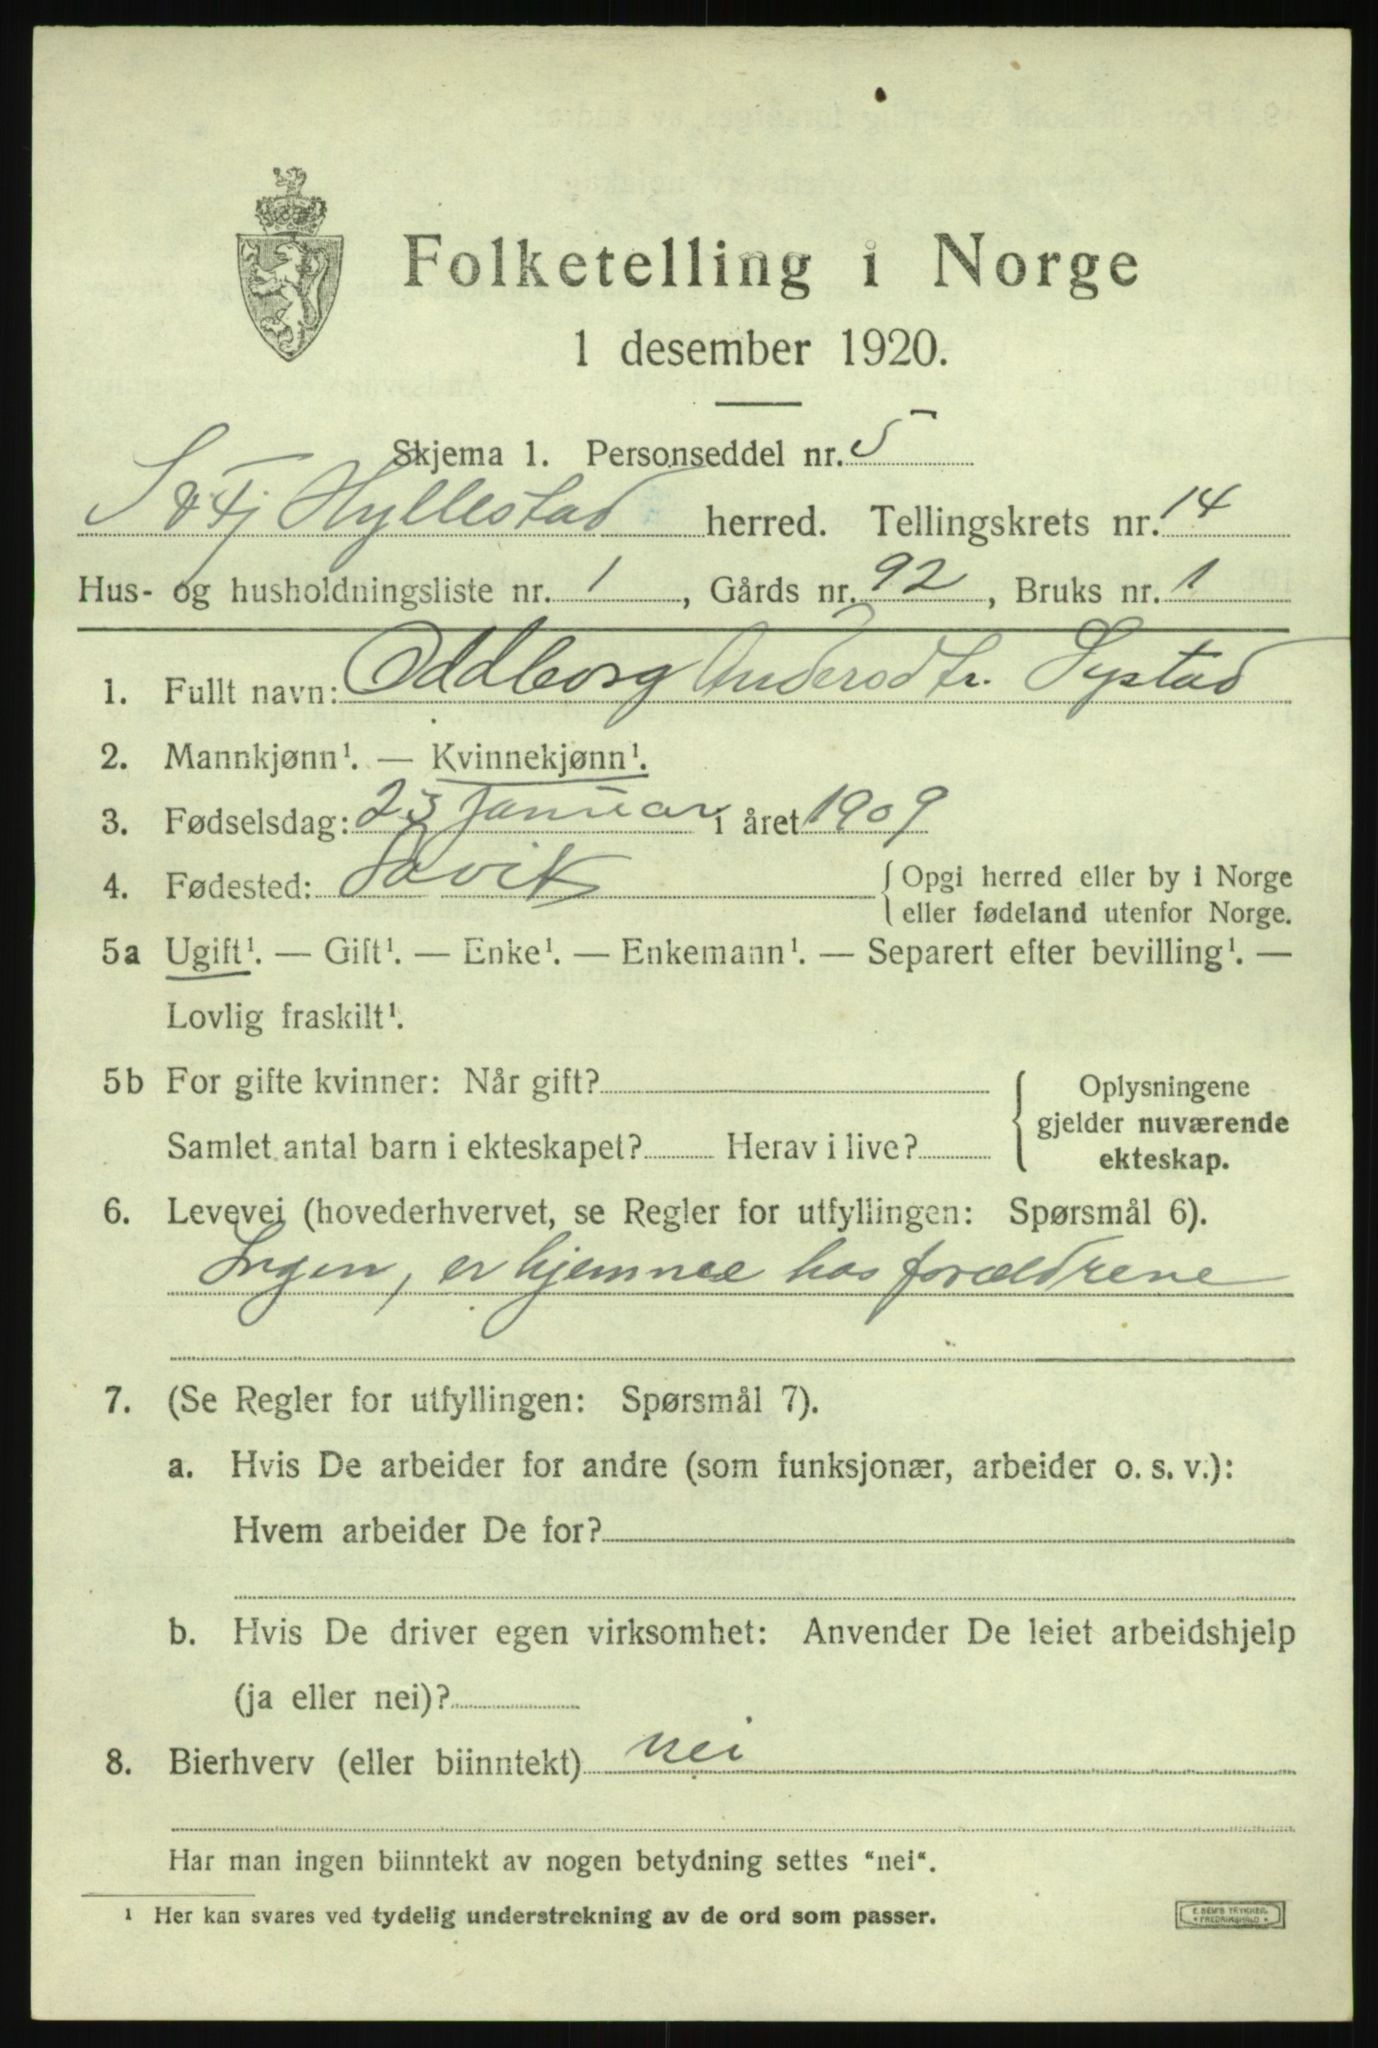 Folketelling i Norge
1 desember 1920.
Skjema 1. Personseddel nr. 5
S & Fj Hyllestad herred. Tellingskrets nr. 14
Hus- og husholdningsliste nr. 1, Gårds nr. 92, Bruks nr. 1
1. Fullt navn: Oddborg Andersdtr. Systad
2. Mannkjønn¹. — Kvinnekjønn¹.
3. Fødselsdag: 23 Januar i året 1909
4. Fødested: Lavik { Opgi herred eller by i Norge
eller fødeland utenfor Norge.
5a Ugift¹. — Gift¹. — Enke¹. — Enkemann¹. — Separert efter bevilling¹. —
Lovlig fraskilt¹.
5b For gifte kvinner: Når gift? { Oplysningene
gjelder nuværende
Samlet antal barn i ekteskapet? Herav i live? ekteskap.
6. Levevei (hovederhvervet, se Regler for utfyllingen: Spørsmål 6).
Ingen, er hjemme hos forældrene
7. (Se Regler for utfyllingen: Spørsmål 7).
a. Hvis De arbeider for andre (som funksjonær, arbeider o. s. v.):
Hvem arbeider De for?
b. Hvis De driver egen virksomhet: Anvender De leiet arbeidshjelp
(ja eller nei)?
8. Bierhverv (eller biinntekt) nei
Har man ingen biinntekt av nogen betydning settes "nei".
¹ Her kan svares ved tydelig understrekning av de ord som passer.
E. SEM'S TRYKKERI
FREDRIKSHALD